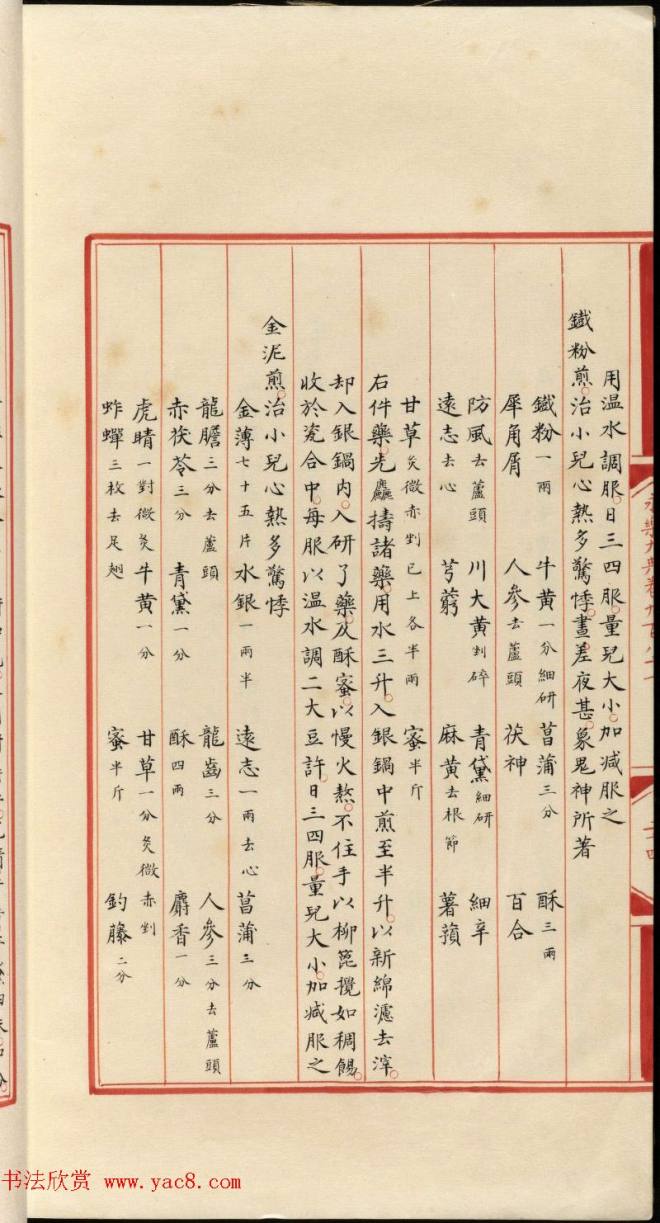 用温水調服。日三四服。量兒大小。加減服之
鐵粉煎。治小兒心熱多驚悸。晝差夜甚。象鬼神所著
鐵粉一兩 牛黄一分細研 菖蒲三分 酥三兩
犀角屑 人參去蘆頭 茯神 百合
防風去蘆頭 川大黄剉碎 青黛細研 細辛
遠志去心 芎藭 麻黄去根節 薯蕷
甘草炙微赤剉已上各半兩 蜜半斤
右件藥。先麤擣諸藥。用水三升。入銀鍋中煎至半升。以新綿濾去滓。
却入銀鍋内。入研了藥。及酥蜜。以慢火熬。不住手以柳箆攪如稠餳。
收於瓷合中。每服以温水調二大豆許。日三四服。量兒大小。加减服之
金泥煎。治小兒心熱多驚悸
金薄七十五片 水銀一兩半 遠志一兩去心 菖蒲三分
龍膽三分去蘆頭 龍齒三分 人參三分去蘆頭
赤茯苓三分 青黛一分 酥四兩 麝香一分
虎睛一對微炙 牛黄一分 甘草一分炙微赤剉
蚱蟬三枚去足翅 蜜半斤 釣藤二分
永樂大典卷九百八十
二十四
书法欣赏 www.yac8.com